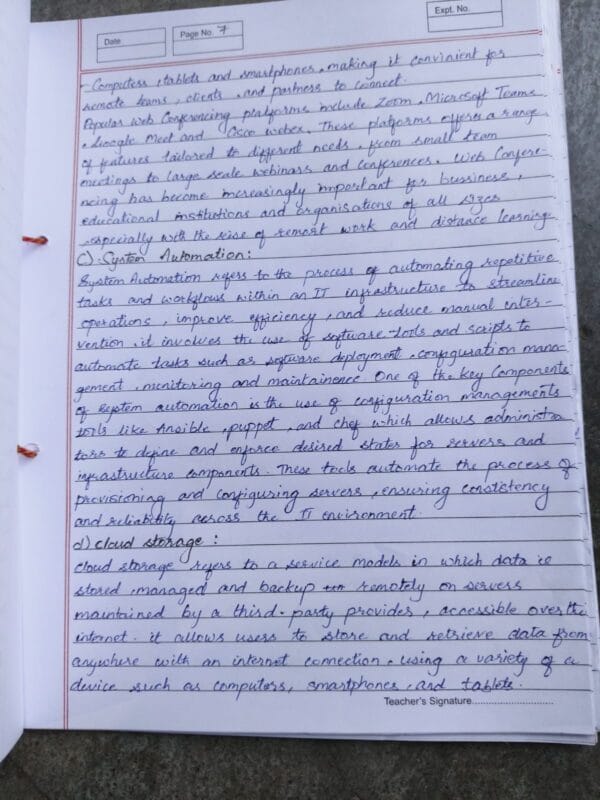 Expt. No.
Date
Page No. 7
- Computers, tablets and smartphones, making it convinient for
remote teams, clients, and partners to connect.
Popular web Conferencing platforms include Zoom, Microsoft Teams
, Google Meet and Cisco webex. These platforms offers a range
of features tailored to different needs, from small team
meetings to large scale webinars and conferences. Web Confere-
ncing has become increasingly important for bussiness,
educational institutions and organisations of all sizes
especially with the rise of remort work and distance learning.
C) System Automation:
System Automation refers to the process of automating repetitive
tasks and workflows within an IT infrastructure to streamline
operations, improve efficiency, and reduce manual inter-
vention. it involves the use of software tools and scripts to
automate tasks such as software deployment, configuration mana-
gement, monitering and maintainence. One of the key Components
of System automation is the use of configuration managements
tools like Ansible, puppet, and chef which allows administra
tors to define and enforce desired states for servers and
infrastructure components. These tools automate the process of
provisioning and configuring servers, ensuring consistency
and reliability across the IT environment.
d) cloud storage :
cloud storage refers to a service models in which data is
stored, managed and backup remotely on servers
maintained by a third-party provides, accessible over the
internet. it allows users to store and retrieve data from
anywhere with an internet connection, using a variety of a
device such as computers, smartphones, and tablets.
Teacher's Signature..............................